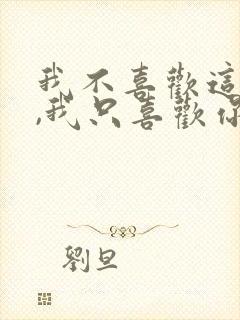 我不喜歡這
,我只喜歡你
劉旦